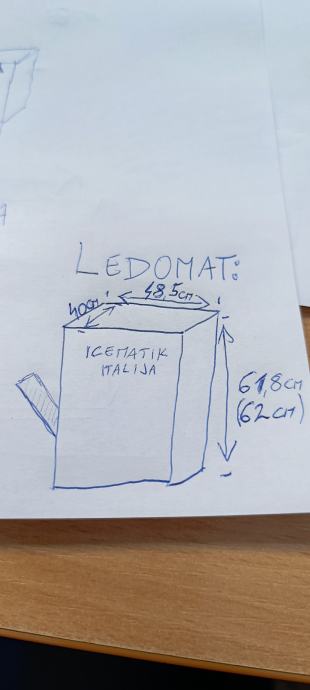 LEDOMAT:
48,5cm
40cm
ICEMATIK
ITALIJA
61,8cm
(62cm)